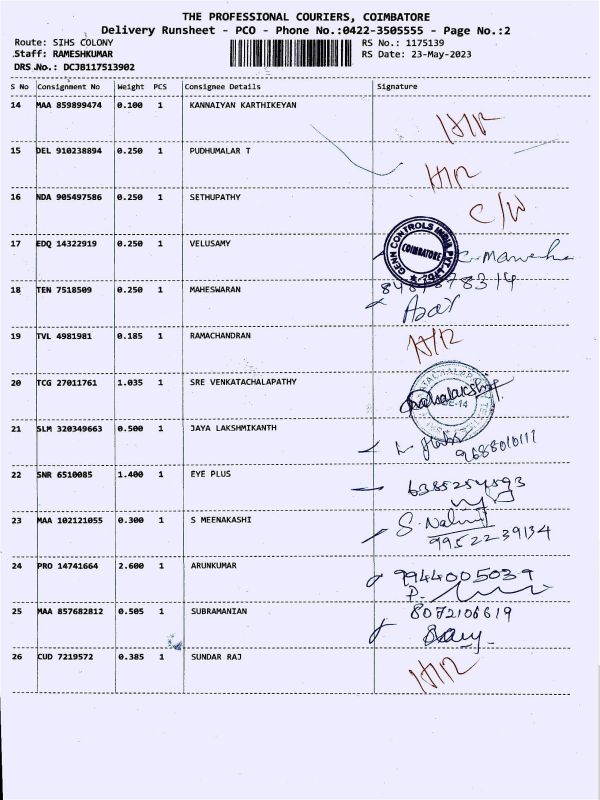 THE PROFESSIONAL COURIERS, COIMBATORE
Delivery Runsheet - PCO - Phone No.:0422-3505555 - Page No.:2
Route: SIHS COLONY RS No.: 1175139
Staff: RAMESHKUMAR RS Date: 23-May-2023
DRS No.: DCJB117513902
S No Consignment No Weight PCS Consignee Details Signature
14 MAA 859899474 0.100 1 KANNAIYAN KARTHIKEYAN
15 DEL 910238894 0.250 1 PUDHUMALAR T
16 NDA 905497586 0.250 1 SETHUPATHY C/W
17 EDQ 14322919 0.250 1 VELUSAMY
GENN CONTROLS INDIA PVT LTD COIMBATORE
18 TEN 7518509 0.250 1 MAHESWARAN
19 TVL 4981981 0.185 1 RAMACHANDRAN
20 TCG 27011761 1.035 1 SRE VENKATACHALAPATHY
21 SLM 320349663 0.500 1 JAYA LAKSHMIKANTH
9688010111
22 SNR 6510085 1.400 1 EYE PLUS 6385254893
23 MAA 102121055 0.300 1 S MEENAKASHI
9952239134
24 PRO 14741664 2.600 1 ARUNKUMAR 9944005039
25 MAA 857682812 0.505 1 SUBRAMANIAN 8072106619
26 CUD 7219572 0.385 1 SUNDAR RAJ